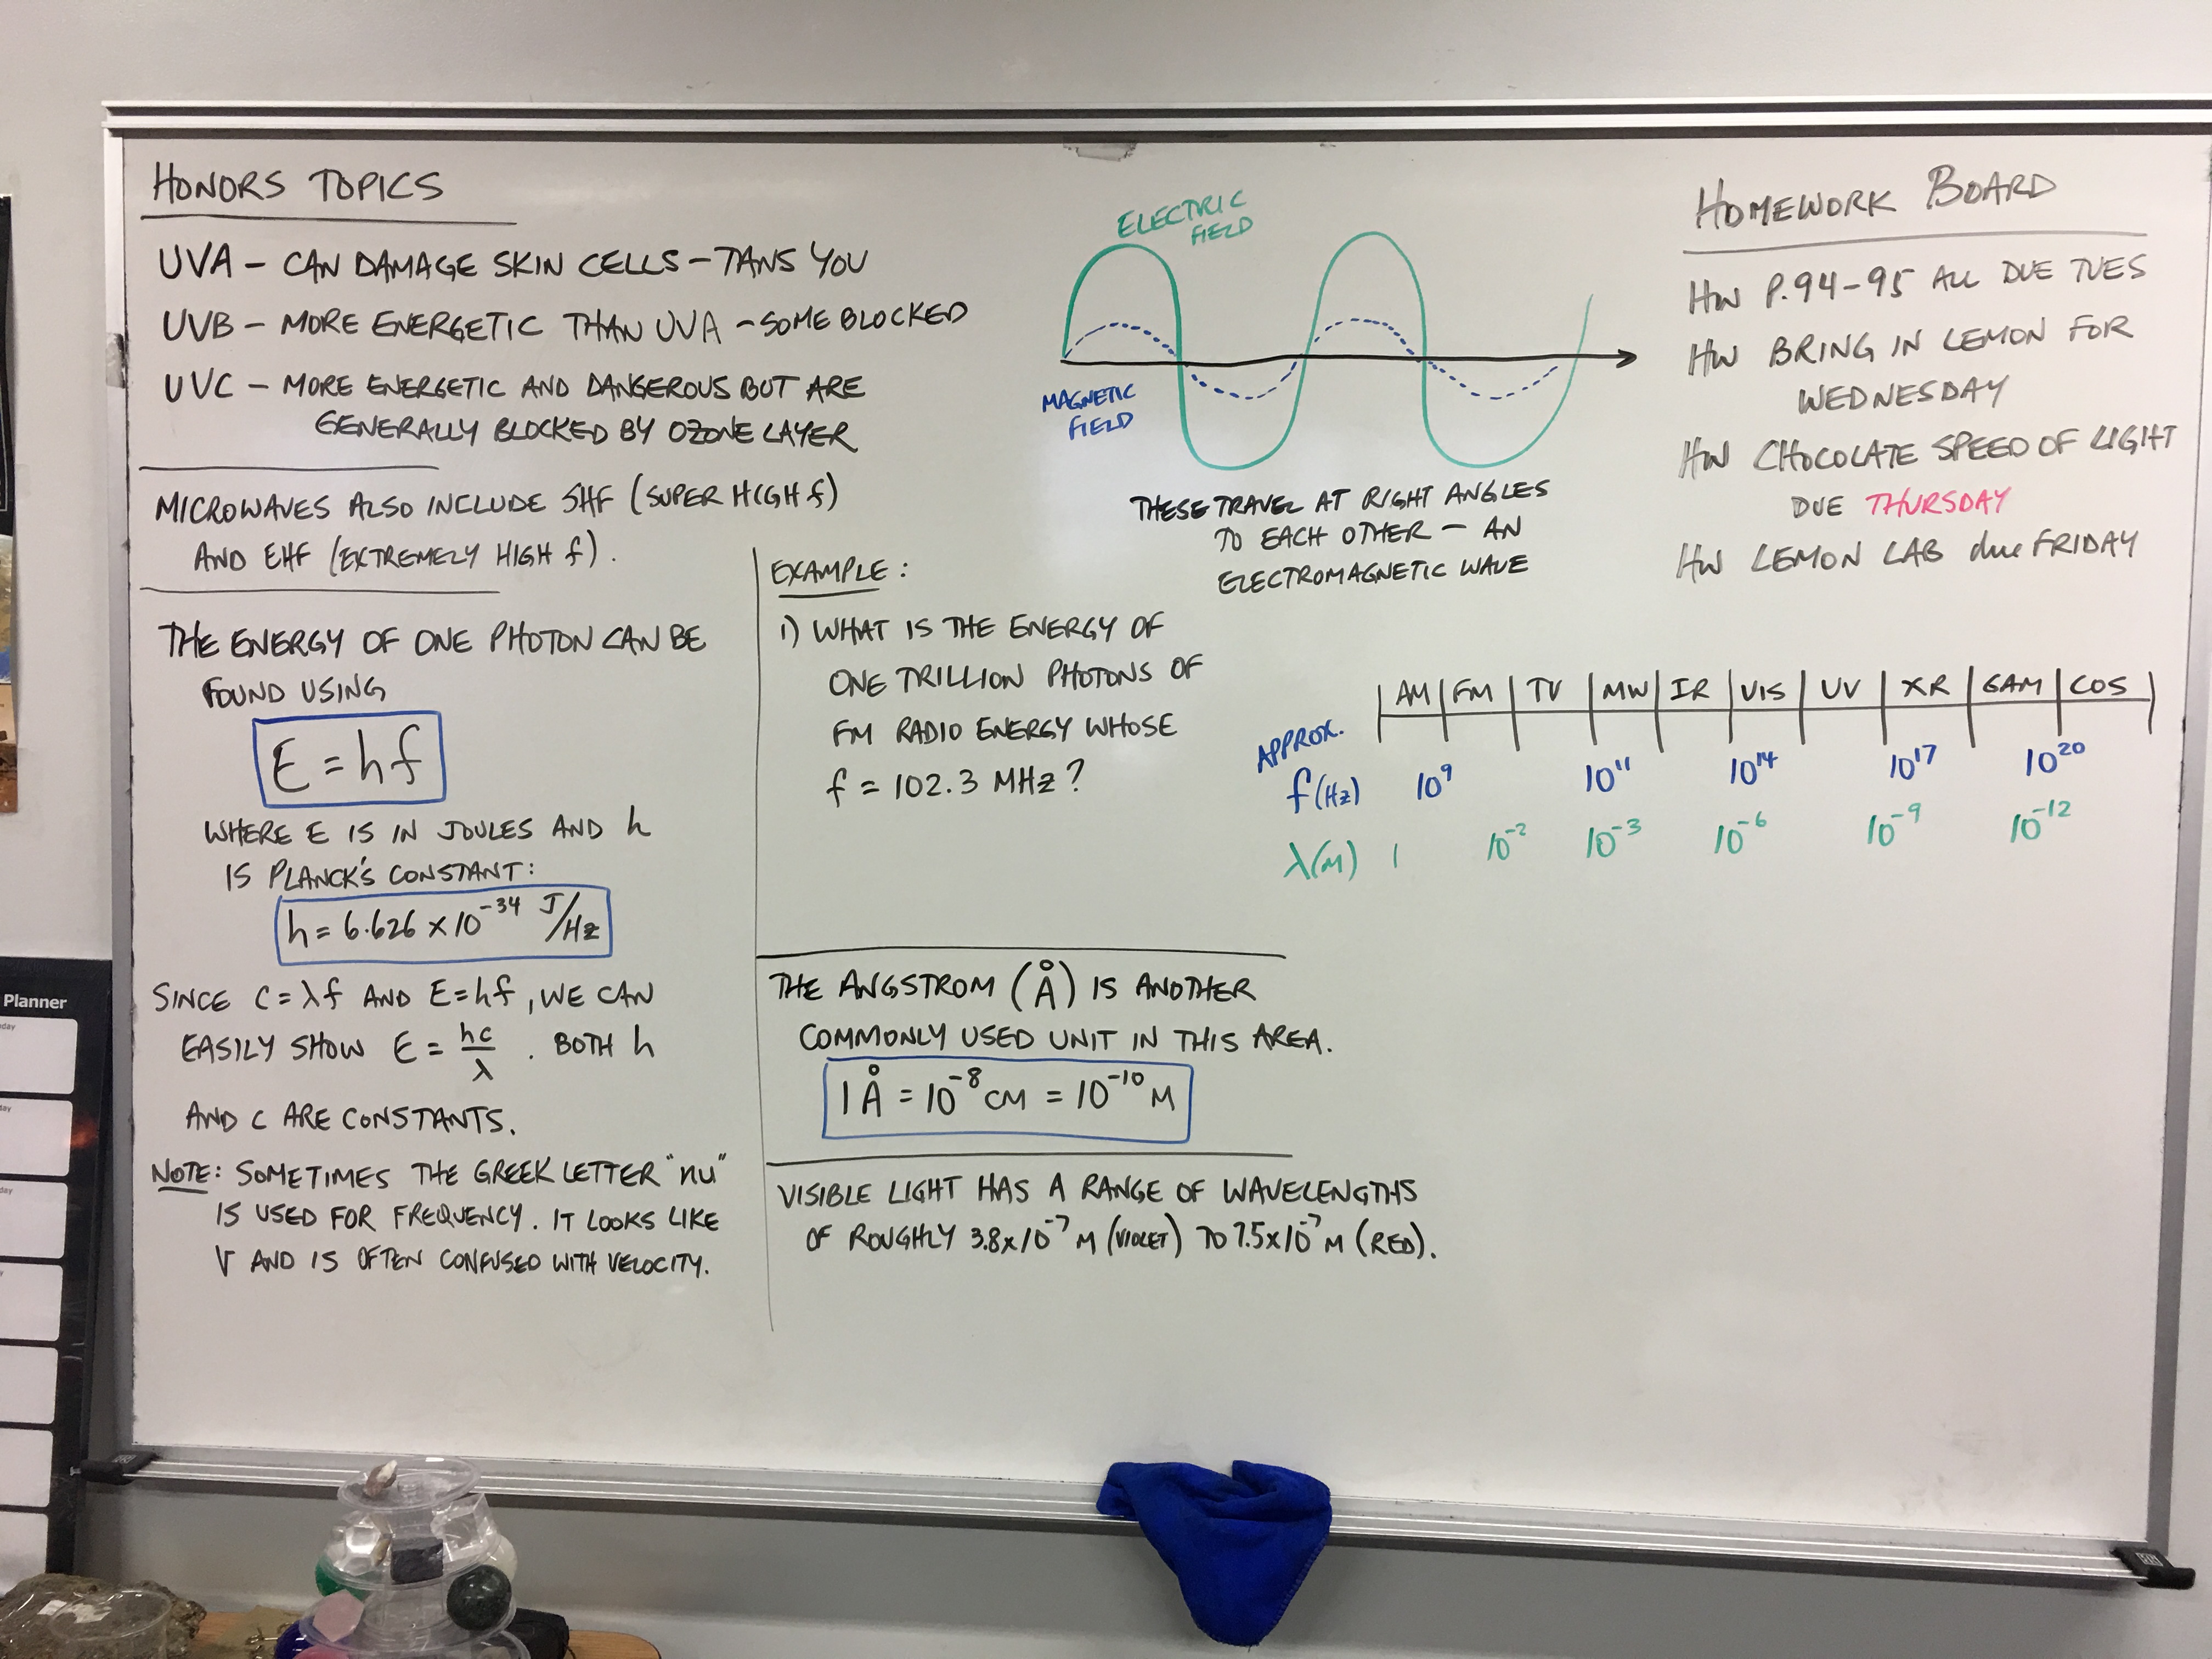 HONORS TOPICS
UVA – CAN DAMAGE SKIN CELLS – TANS YOU
UVB – MORE ENERGETIC THAN UVA – SOME BLOCKED
UVC – MORE ENERGETIC AND DANGEROUS BUT ARE
GENERALLY BLOCKED BY OZONE LAYER
MICROWAVES ALSO INCLUDE SHF (SUPER HIGH f)
AND EHF (EXTREMELY HIGH f).
THE ENERGY OF ONE PHOTON CAN BE
FOUND USING
E = hf
WHERE E IS IN JOULES AND h
IS PLANCK'S CONSTANT:
h = 6.626 × 10⁻³⁴ J/Hz
SINCE C = λf AND E = hf, WE CAN
EASILY SHOW E = hc/λ . BOTH h
AND C ARE CONSTANTS.
NOTE: SOMETIMES THE GREEK LETTER "nu"
IS USED FOR FREQUENCY. IT LOOKS LIKE
V AND IS OFTEN CONFUSED WITH VELOCITY.
EXAMPLE:
1) WHAT IS THE ENERGY OF
ONE TRILLION PHOTONS OF
FM RADIO ENERGY WHOSE
f = 102.3 MHz?
THE ANGSTROM (Å) IS ANOTHER
COMMONLY USED UNIT IN THIS AREA.
1 Å = 10⁻⁸ CM = 10⁻¹⁰ M
VISIBLE LIGHT HAS A RANGE OF WAVELENGTHS
OF ROUGHLY 3.8×10⁻⁷ M (VIOLET) TO 7.5×10⁻⁷ M (RED).
ELECTRIC
FIELD
MAGNETIC
FIELD
THESE TRAVEL AT RIGHT ANGLES
TO EACH OTHER – AN
ELECTROMAGNETIC WAVE
HOMEWORK BOARD
HW P.94-95 ALL DUE TUES
HW BRING IN LEMON FOR
WEDNESDAY
HW CHOCOLATE SPEED OF LIGHT
DUE THURSDAY
HW LEMON LAB due FRIDAY
AM FM TV MW IR VIS UV XR GAM COS
APPROX.
f(Hz) 10⁹ 10¹¹ 10¹⁴ 10¹⁷ 10²⁰
λ(M) 1 10⁻² 10⁻³ 10⁻⁶ 10⁻⁹ 10⁻¹²
Planner